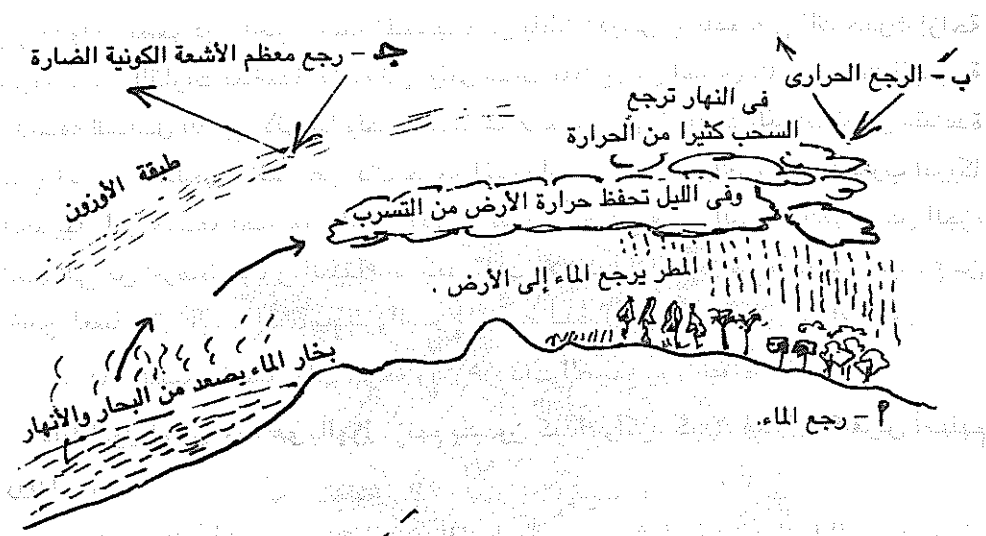 جـ – رجع معظم الأشعة الكونية الضارة
ب – الرجع الحرارى
فى النهار ترجع
السحب كثيرا من الحرارة
طبقة الأوزون
وفى الليل تحفظ حرارة الأرض من التسرب
المطر يرجع الماء إلى الأرض .
بخار الماء يصعد من البحار والأنهار
أ – رجع الماء.